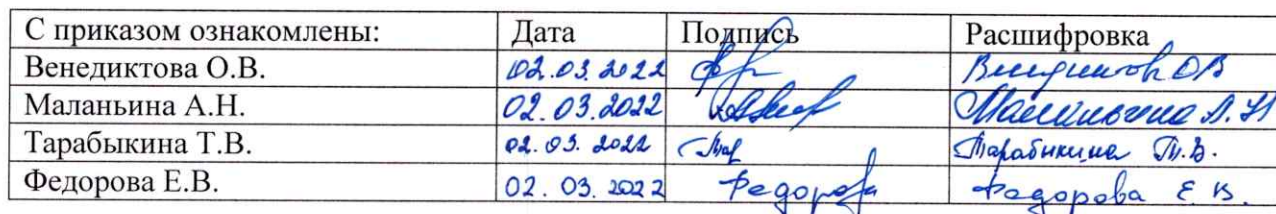 С приказом ознакомлены: Дата Подпись Расшифровка
Венедиктова О.В. 02.03.2022 Венедиктов ОВ
Маланьина А.Н. 02.03.2022 Маланьина А.Н
Тарабыкина Т.В. 02.03.2022 Тар Тарабыкина Т.В.
Федорова Е.В. 02.03.2022 Федорова Федорова Е.В.